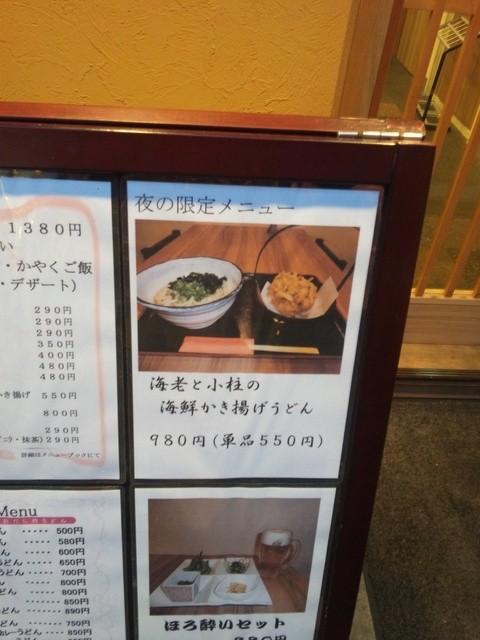 1380円
い
・かやくご飯
・デザート）
290円
290円
290円
350円
400円
480円
480円
き揚げ 550円
800円
290円
抹茶）290円
詳細はメニューブックにて
夜の限定メニュー
海老と小柱の
海鮮かき揚げうどん
980円（単品550円）
Menu
ん ····· 500円
ん ····· 580円
ん ····· 600円
うどん ···· 650円
うどん ···· 700円
ん ····· 800円
····· 800円
····· 850円
····· 890円
うどん ···· 750円
カレーうどん ···· 850円
うどん ···· 850円
ほろ酔いセット